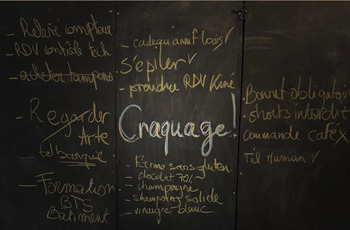 - Relevé compteur
- RDV contrôle tech
- acheter tampons
- Regarder
Arte
tel banque
- Formation
BTS
Bâtiment
- cadequ anuf Louis √
- S'épiler √
- prendre RDV Kiné
Craquage!
- Farine sans gluten
- chocolat 70%
- champagne
- shampoing solide
- vinaigre blanc
- Bonnet obligatoire
- shorts interdit
commande café x
Tél Maman √